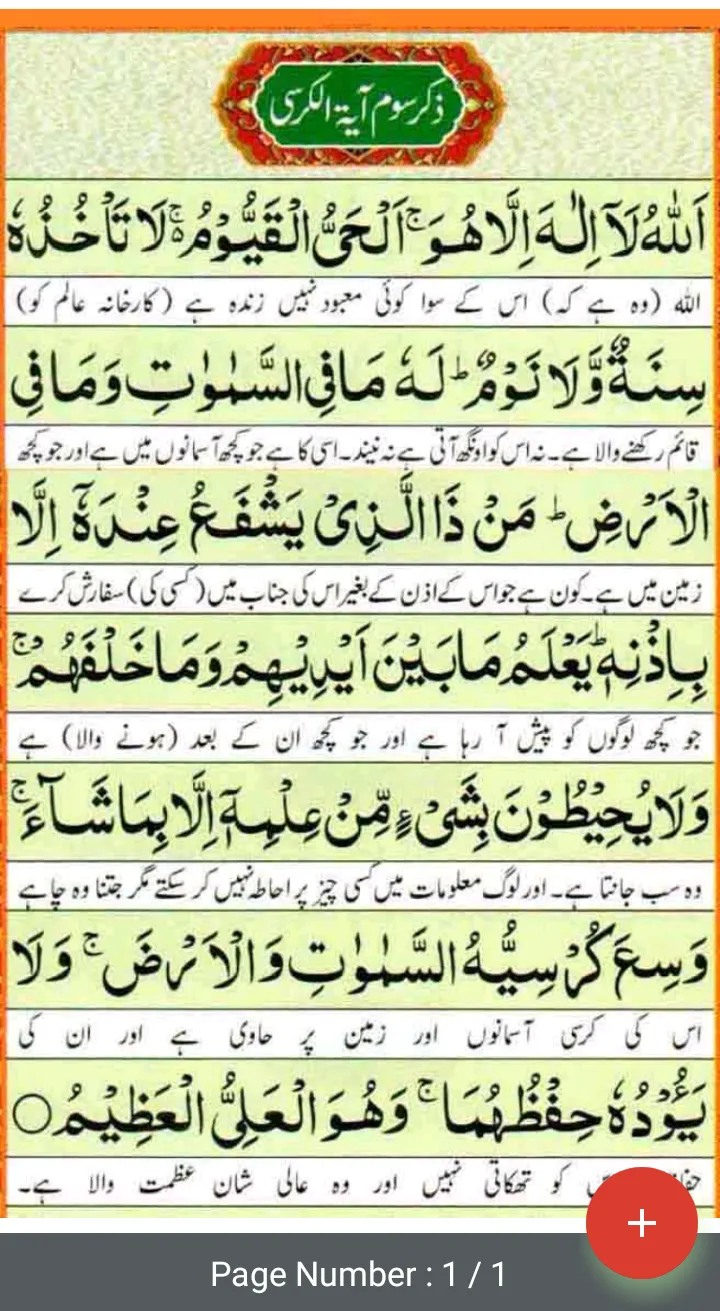 ذکر سوم آیۃ الکرسی
اَللّٰهُ لَاۤ اِلٰهَ اِلَّا هُوَ ۚ اَلْحَیُّ الْقَیُّوْمُ ۚ۬ لَا تَاْخُذُهٗ
اللہ (وہ ہے کہ) اس کے سوا کوئی معبود نہیں زندہ ہے (کارخانہ عالم کو)
سِنَةٌ وَّلَا نَوْمٌ ؕ لَهٗ مَا فِی السَّمٰوٰتِ وَمَا فِی
قائم رکھنے والا ہے۔ نہ اس کو اونگھ آتی ہے نہ نیند۔ اسی کا ہے جو کچھ آسمانوں میں ہے اور جو کچھ
الْاَرْضِ ؕ مَنْ ذَا الَّذِیْ یَشْفَعُ عِنْدَهٗۤ اِلَّا
زمین میں ہے۔ کون ہے جو اس کے اذن کے بغیر اس کی جناب میں (کسی کی) سفارش کرے
بِاِذْنِهٖ ؕ یَعْلَمُ مَا بَیْنَ اَیْدِیْهِمْ وَمَا خَلْفَهُمْ ۚ
جو کچھ لوگوں کو پیش آ رہا ہے اور جو کچھ ان کے بعد (ہونے والا) ہے
وَلَا یُحِیْطُوْنَ بِشَیْءٍ مِّنْ عِلْمِهٖۤ اِلَّا بِمَا شَآءَ ۚ
وہ سب جانتا ہے۔ اور لوگ معلومات میں کسی چیز پر احاطہ نہیں کر سکتے مگر جتنا وہ چاہے
وَسِعَ كُرْسِیُّهُ السَّمٰوٰتِ وَالْاَرْضَ ۚ وَلَا
اس کی کرسی آسمانوں اور زمین پر حاوی ہے اور ان کی
یَـُٔوْدُهٗ حِفْظُهُمَا ۚ وَهُوَ الْعَلِیُّ الْعَظِیْمُ ○
کو تھکاتی نہیں اور وہ عالی شان عظمت والا ہے۔
Page Number : 1 / 1